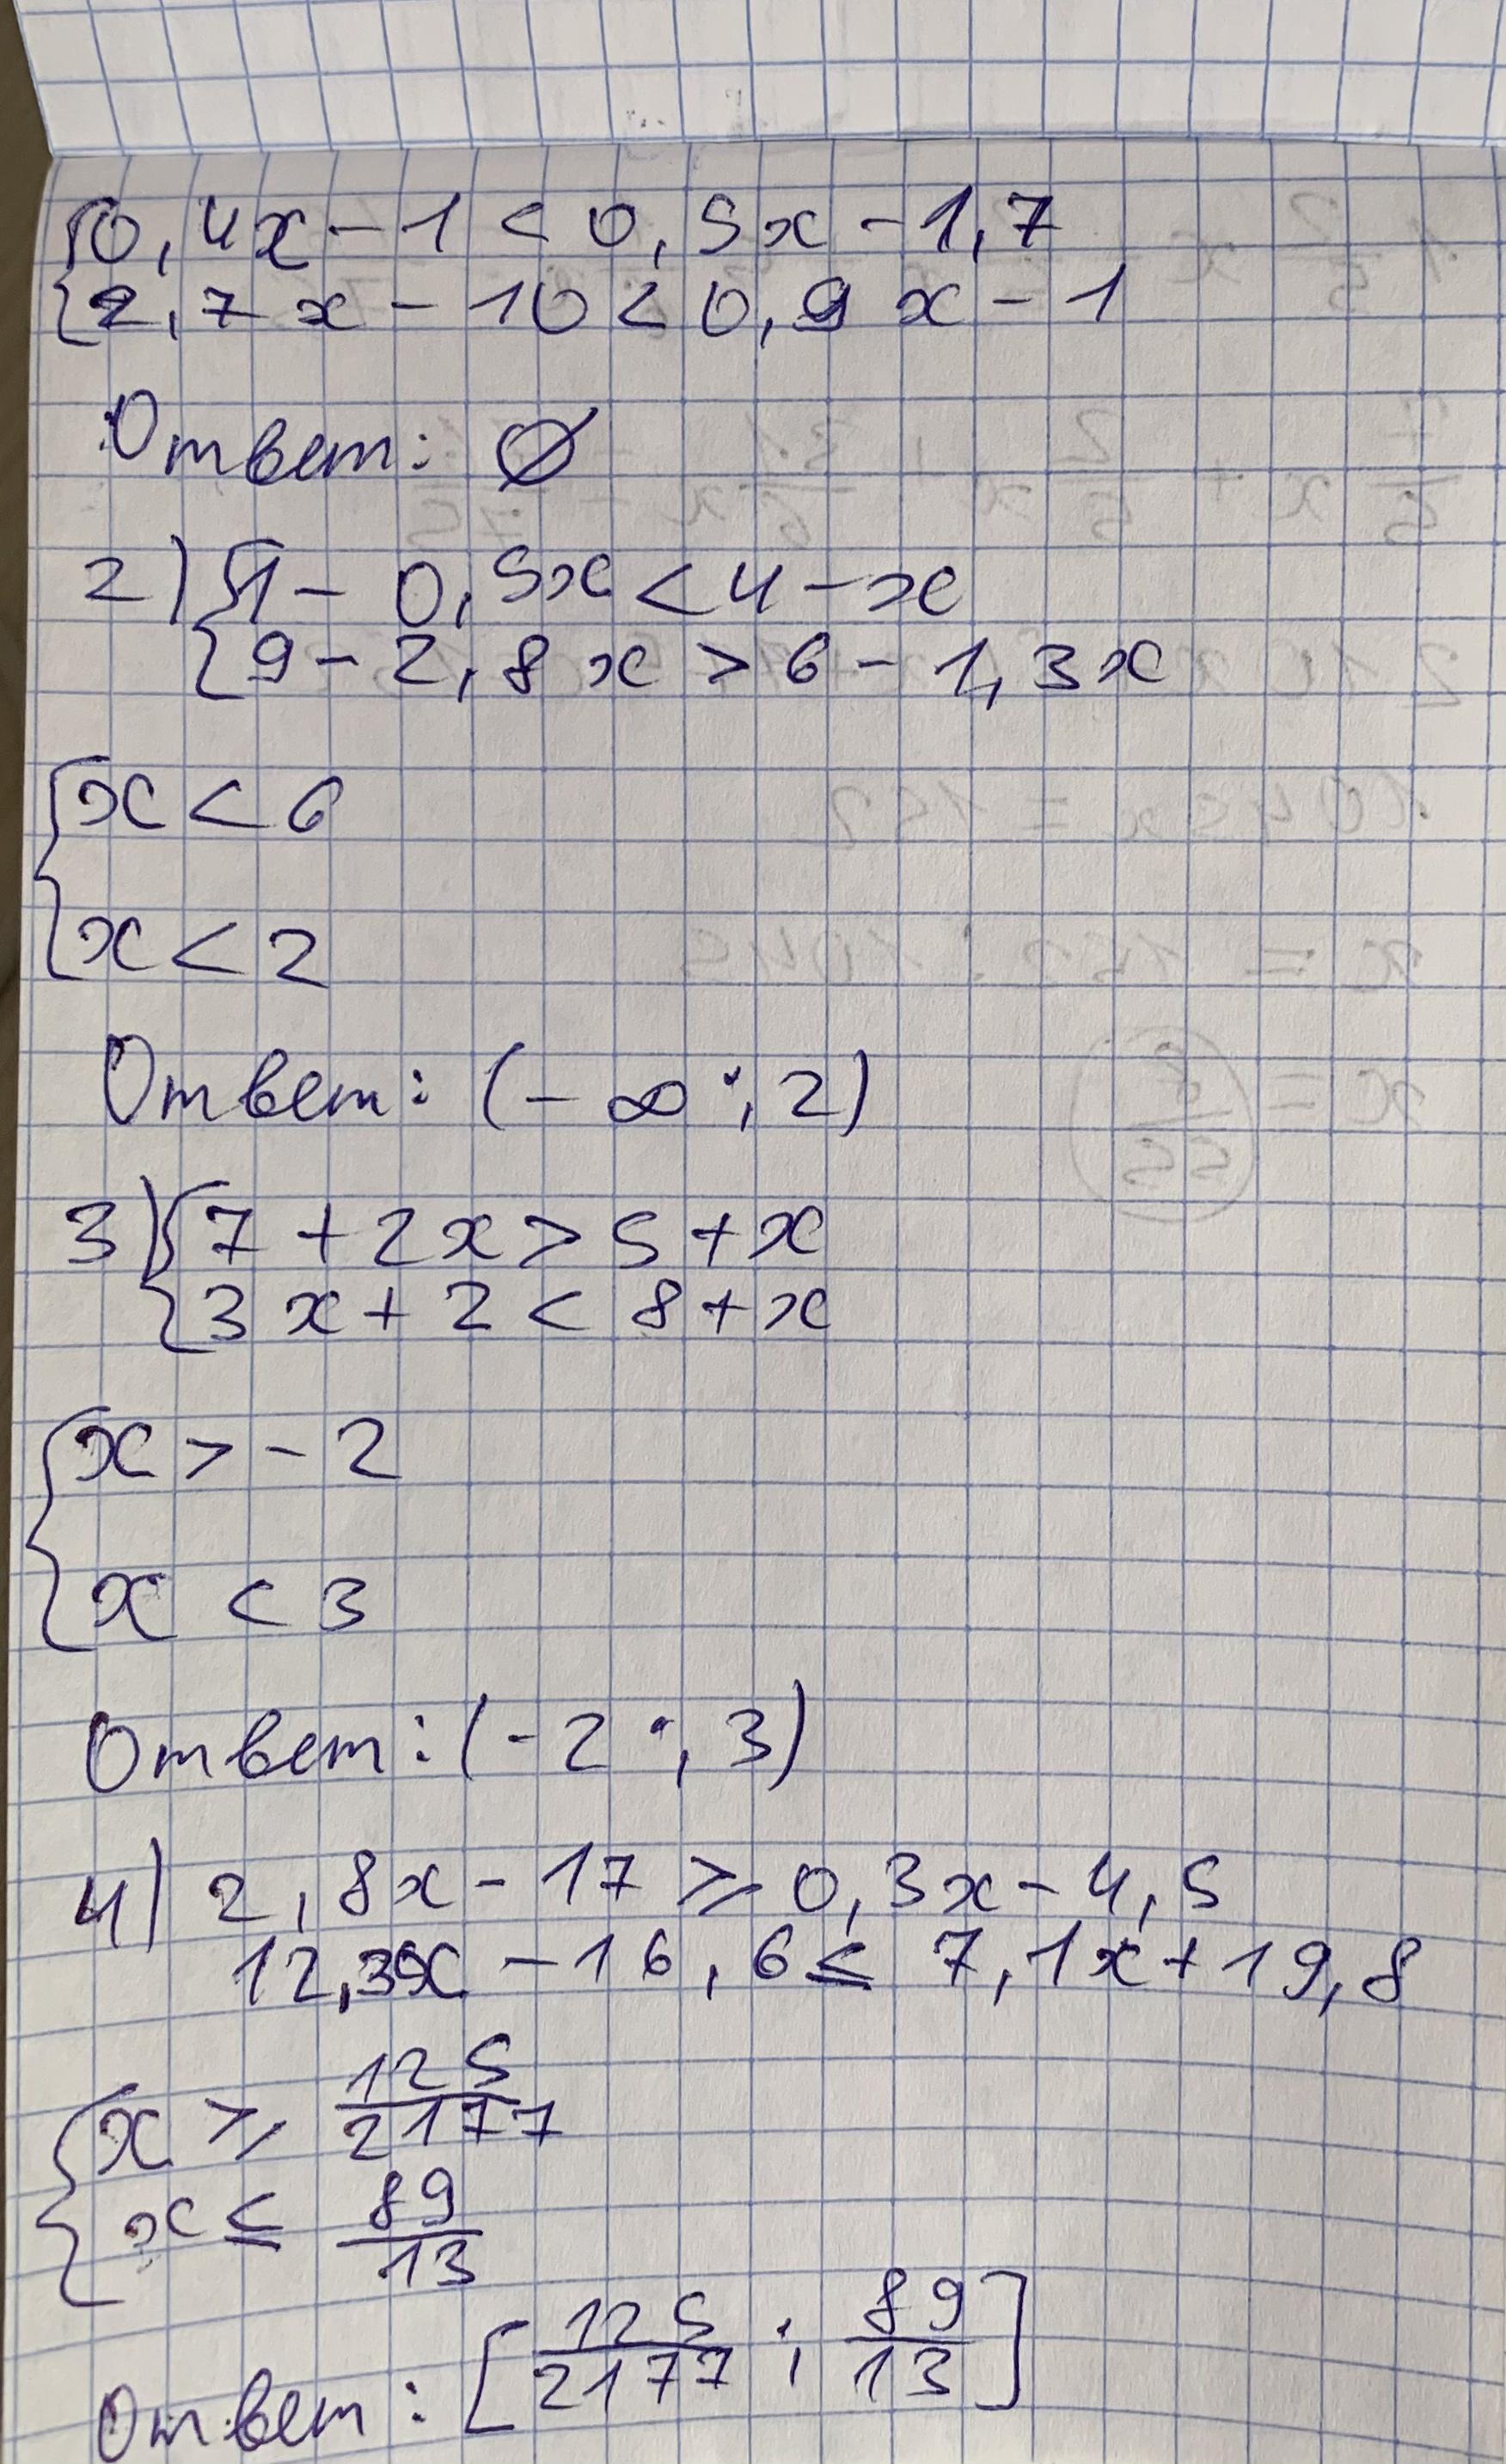 {0,4x-1<0,5x-1,7
{2,7x-10<0,9x-1
Ответ: ∅
2) {1-0,5x<4-x
{9-2,8x>6-1,3x
{x<6
{x<2
Ответ: (-∞;2)
3) {7+2x>5+x
{3x+2<8+x
{x>-2
{x<3
Ответ: (-2;3)
4) 2,8x-17⩾0,3x-4,5
12,3x-16,6≤7,1x+19,8
{x⩾125/2177
{x≤89/13
Ответ: [125/2177;89/13]